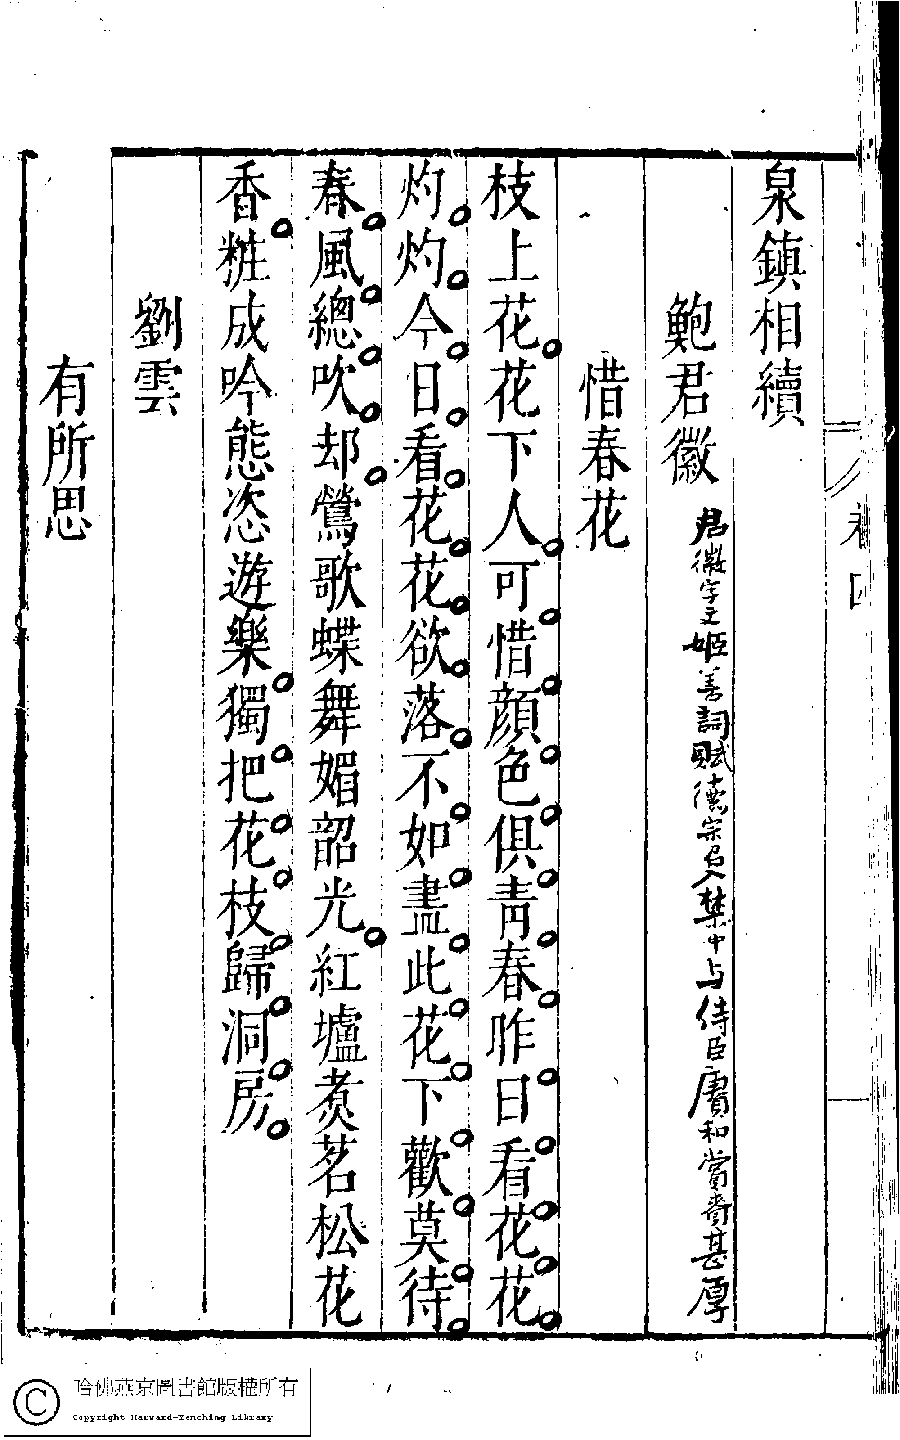 泉鎮相續
鮑君徽
君徽字文姬善詞賦德宗召入禁中与侍臣賡和賞賚甚厚
惜春花
枝上花花下人可惜顔色俱靑春昨日看花花
灼灼今日看花花欲落不如盡此花下歡莫待
春風總吹却鶯歌蝶舞媚韶光紅壚煑茗松花
香粧成吟態恣遊樂獨把花枝歸洞房
劉雲
有所思
哈佛燕京圖書館版權所有
Copyright Harvard-Yenching Library